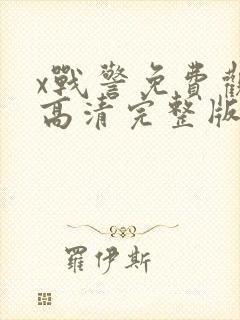 x戰警免費觀
高清完整版
羅伊斯